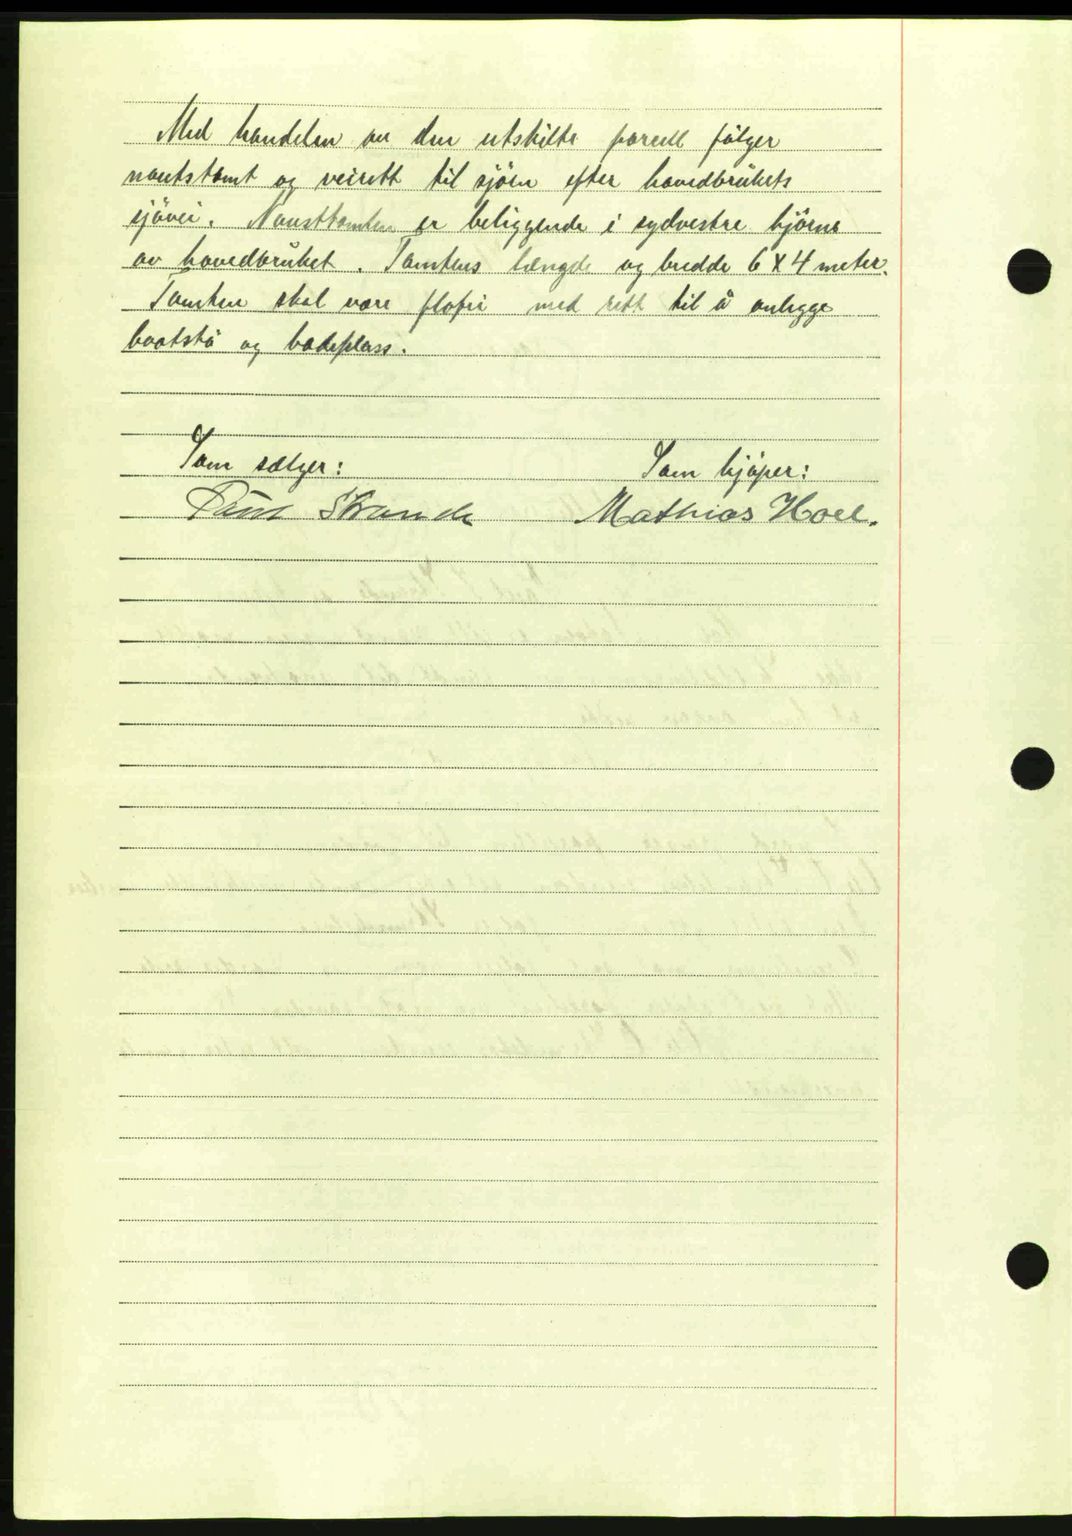 Med handelen av den utskilte parsell følger
naustomt og veirett til sjöen efter hovedbrükets
sjövei. Nausttomten er beliggende i sydvestre hjörne
av hovedbrüket. Tomtens længde og bredde 6 X 4 meter.
Tomten skal være flofri med rett til å anlegge
baatstö og badeplass.
Som sælger:
Som kjöper:
Paul Strande
Mathias Hoel.